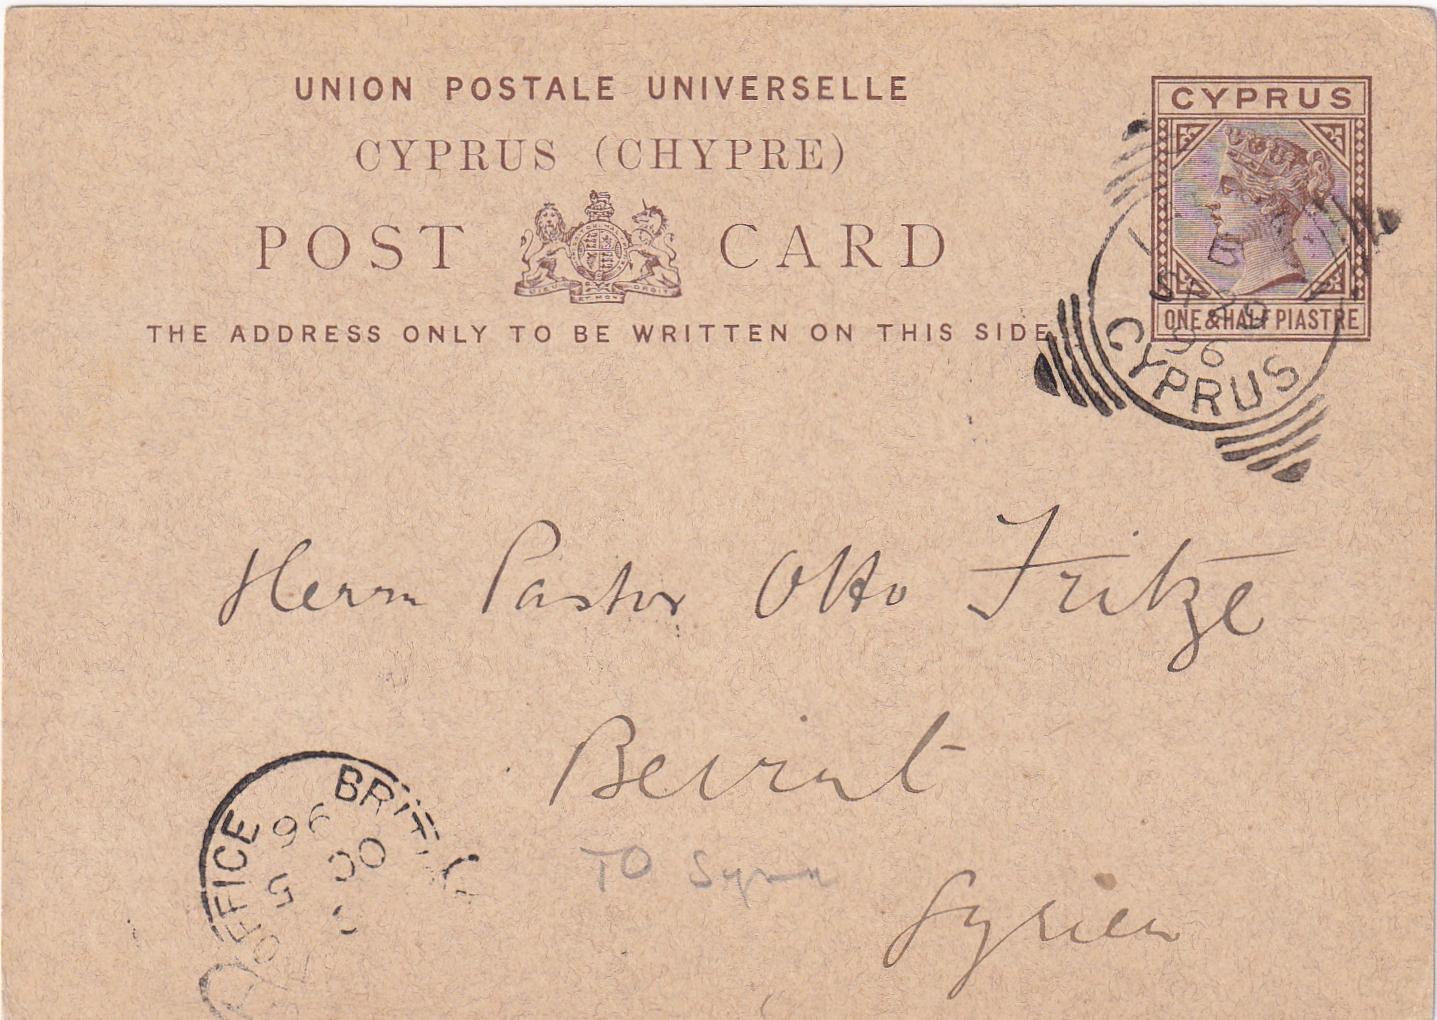 UNION POSTALE UNIVERSELLE
CYPRUS (CHYPRE)
POST CARD
THE ADDRESS ONLY TO BE WRITTEN ON THIS SIDE
CYPRUS
ONE & HALF PIASTRE
DIEU ET MON DROIT
B
SP 29
96
CYPRUS
Herrn Pastor Otto Fritze
Beirut
TO Syria
Syrien
BRITI
OFFICE
96
OC
5